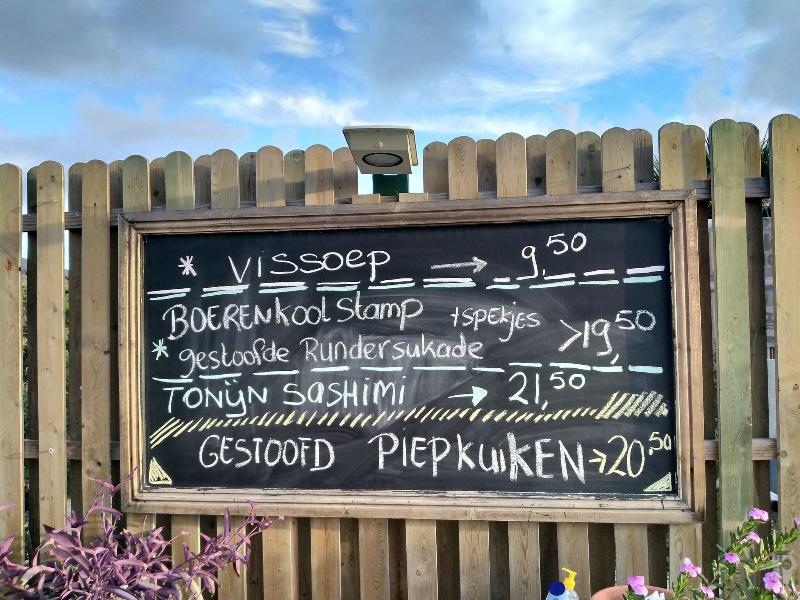 * Vissoep → 9,50
BOERENkoolStamp +spekjes >19,50
* gestoofde Rundersukade
TONIJN SASHIMI → 21,50
GESTOOFD PIEPKUIKEN → 20,50